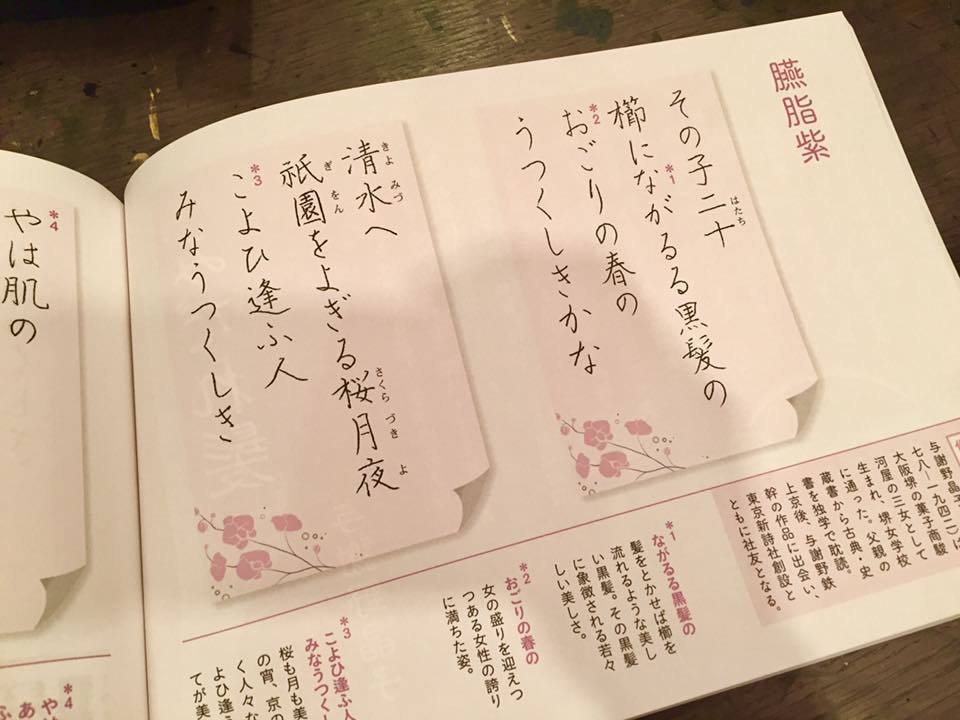 臙脂紫
その子二十
はたち
櫛にながるる黒髪の
*1
おごりの春の
*2
うつくしきかな
清水へ
きよみづ
祇園をよぎる桜月夜
ぎをん
さくらづきよ
こよひ逢ふ人
*3
みなうつくしき
*4
やは肌の
与謝野晶子
七八―一九四二)は
大阪堺の菓子商駿
河屋の三女として
生まれ、堺女学校
に通った。父親の
蔵書から古典・史
書を独学で耽読。
上京後、与謝野鉄
幹の作品に出会い、
東京新詩社創設と
ともに社友となる。
*1
ながるる黒髪の
髪をとかせば櫛を
流れるような美し
い黒髪。その黒髪
に象徴される若々
しい美しさ。
*2
おごりの春の
女の盛りを迎えつ
つある女性の誇り
に満ちた姿。
*3
こよひ逢ふ人
みなうつくし
桜も月も美
の宵、京の
く人々な
よひ逢ふ
てが美
*4
や
あ
ふ